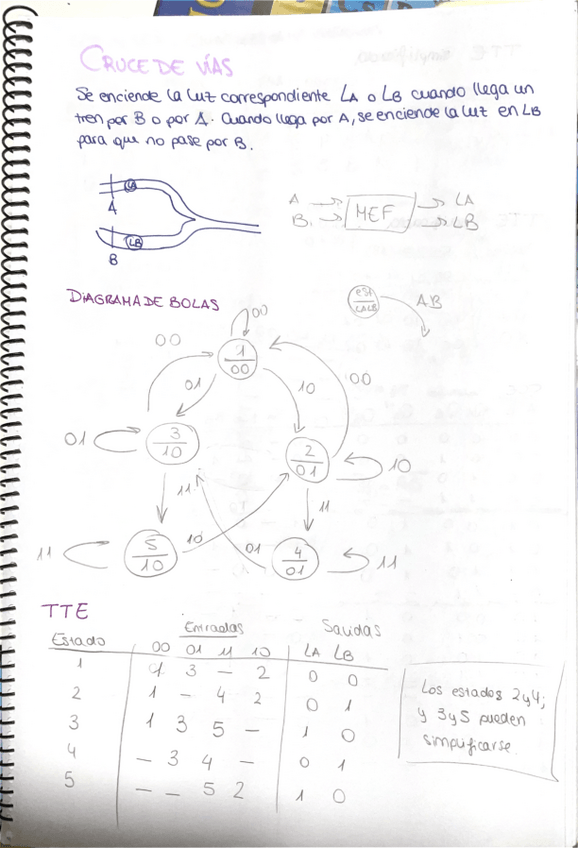 CRUCE DE VÍAS
Se enciende la luz correspondiente LA o LB cuando llega un
tren por B o por A. Cuando llega por A, se enciende la luz en LB
para que no pase por B.
LA
A
LB
B
A
B
MEF
LA
LB
DIAGRAMA DE BOLAS
est
LALB
AB
00
1
00
00
01
10
00
01
3
10
2
01
10
11
11
5
10
10
01
4
01
11
11
TTE
Estado Entradas Salidas
00 01 11 10 LA LB
1 1 3 - 2 0 0
2 1 - 4 2 0 1
3 1 3 5 - 1 0
4 - 3 4 - 0 1
5 - - 5 2 1 0
Los estados 2y4;
y 3y5 pueden
simplificarse.